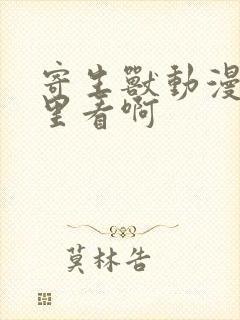 寄生獸動漫
里看啊
莫林告